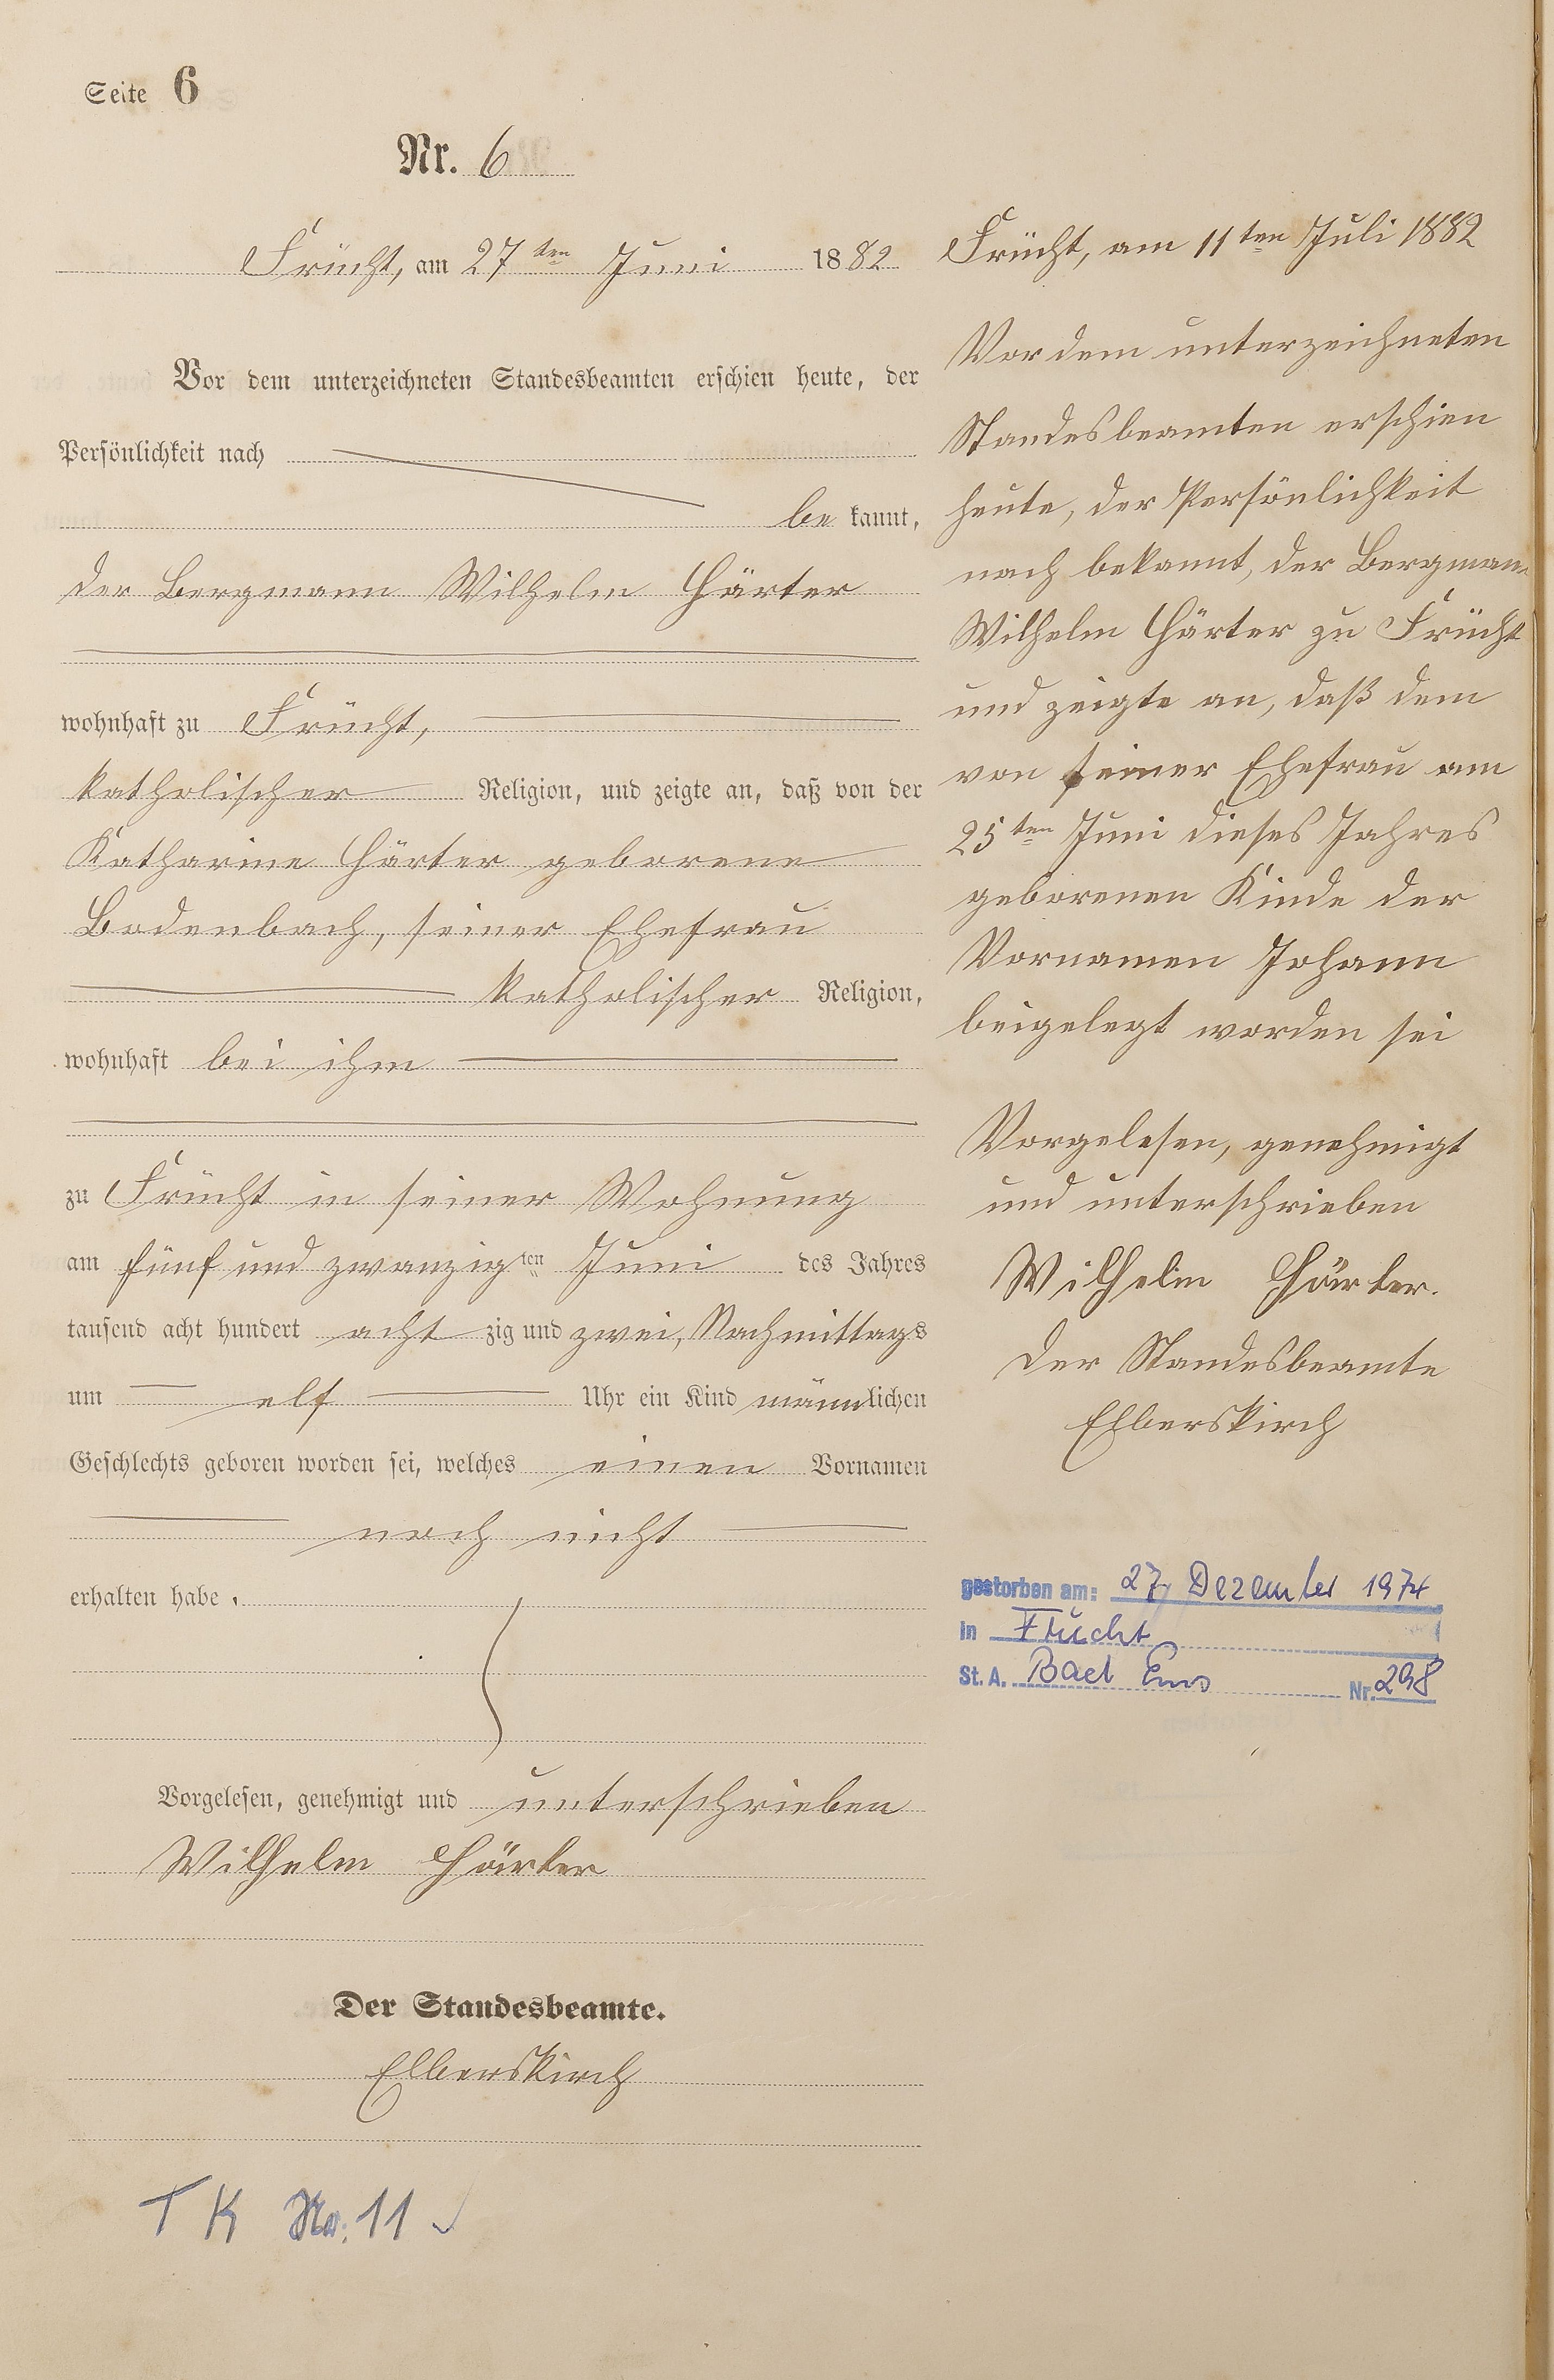 Seite 6
Nr. 6
Frücht, am 27ten Juni 1882
Vor dem unterzeichneten Standesbeamten erschien heute, der
Persönlichkeit nach
be kannt,
der Bergmann Wilhelm Härter
wohnhaft zu Frücht,
katholischer Religion, und zeigte an, daß von der
Katharine Härter geborene
Bodenbach, seiner Ehefrau
katholischer Religion,
wohnhaft bei ihm
zu Frücht in seiner Wohnung
am fünf und zwanzigten Juni des Jahres
tausend acht hundert acht zig und zwei, Nachmittags
um elf Uhr ein Kind männlichen
Geschlechts geboren worden sei, welches einen Vornamen
noch nicht
erhalten habe.
Vorgelesen, genehmigt und unterschrieben
Wilhelm Härter
Der Standesbeamte.
Elberskirch
T K No: 11
Frücht, am 11ten Juli 1882
Vor dem unterzeichneten
Standesbeamten erschien
heute, der Persönlichkeit
nach bekannt, der Bergmann
Wilhelm Härter zu Frücht
und zeigte an, daß dem
von seiner Ehefrau am
25ten Juni dieses Jahres
geborenen Kinde der
Vornamen Johann
beigelegt worden sei
Vorgelesen, genehmigt
und unterschrieben
Wilhelm Härter.
Der Standesbeamte
Elberskirch
gestorben am: 27. Dezember 1974
in Frücht
St. A. Bad Ems Nr. 298